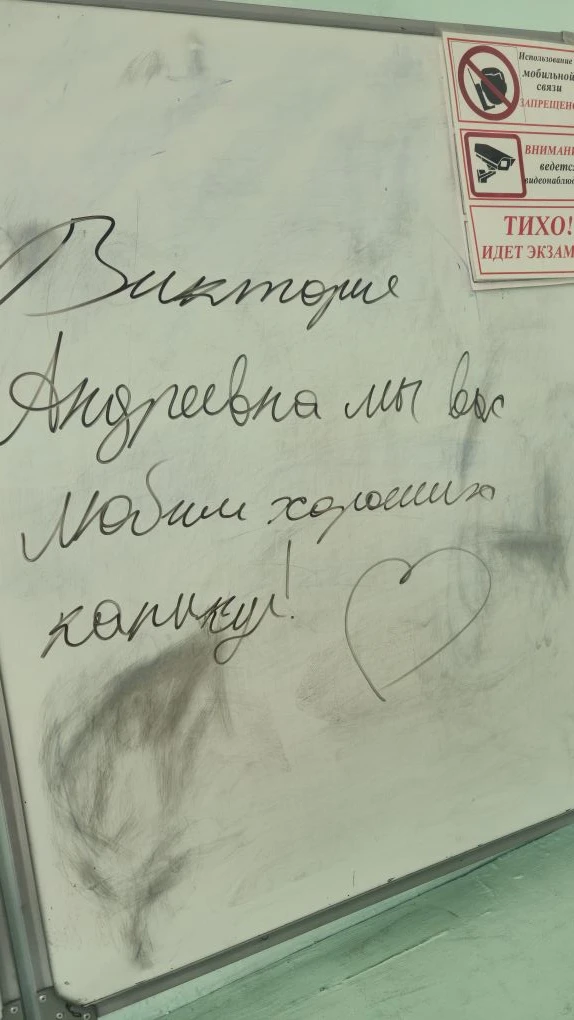 Использование
мобильной
связи
ЗАПРЕЩЕНО
ВНИМАНИ
ведется
видеонаблюд
ТИХО!
ИДЕТ ЭКЗАМ
Виктория
Андреевна мы вас
любим хороших
каникул!